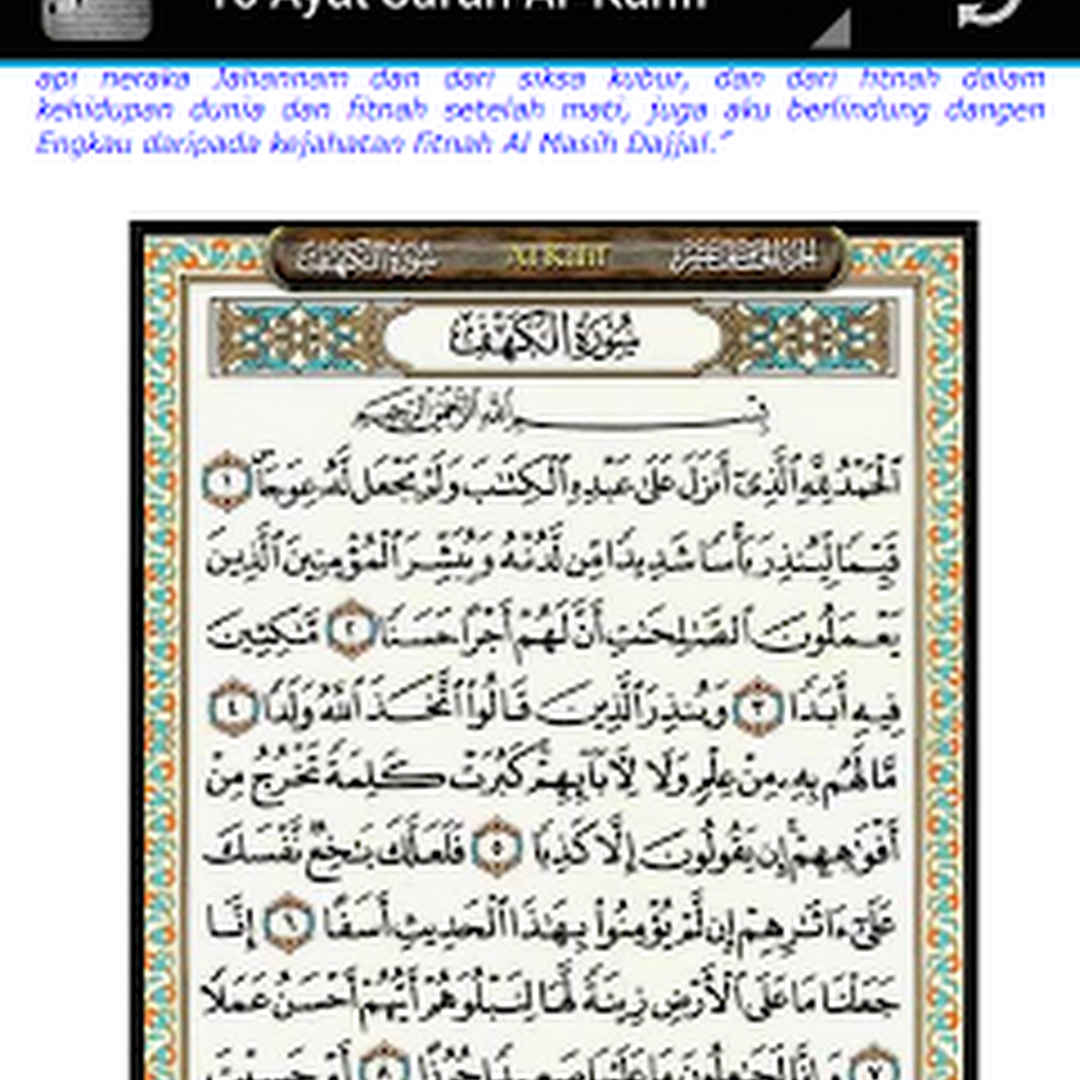 10 Ayat Surah Al-Kahfi
api neraka Jahannam dan dari siksa kubur, dan dari fitnah dalam
kehidupan dunia dan fitnah setelah mati, juga aku berlindung dangen
Engkau daripada kejahatan fitnah Al Masih Dajjal."
سُورَةُ الكَهْفِ Al Kahf الجزء الخامس عشر
سُورَةُ الكَهْفِ
بِسْمِ اللَّهِ الرَّحْمَٰنِ الرَّحِيمِ
ٱلْحَمْدُ لِلَّهِ ٱلَّذِىٓ أَنزَلَ عَلَىٰ عَبْدِهِ ٱلْكِتَٰبَ وَلَمْ يَجْعَل لَّهُۥ عِوَجَاۜ ١
قَيِّمًا لِّيُنذِرَ بَأْسًا شَدِيدًا مِّن لَّدُنْهُ وَيُبَشِّرَ ٱلْمُؤْمِنِينَ ٱلَّذِينَ
يَعْمَلُونَ ٱلصَّٰلِحَٰتِ أَنَّ لَهُمْ أَجْرًا حَسَنًا ٢ مَّٰكِثِينَ
فِيهِ أَبَدًا ٣ وَيُنذِرَ ٱلَّذِينَ قَالُوا۟ ٱتَّخَذَ ٱللَّهُ وَلَدًا ٤
مَّا لَهُم بِهِۦ مِنْ عِلْمٍ وَلَا لِءَابَآئِهِمْ ۚ كَبُرَتْ كَلِمَةً تَخْرُجُ مِنْ
أَفْوَٰهِهِمْ ۚ إِن يَقُولُونَ إِلَّا كَذِبًا ٥ فَلَعَلَّكَ بَٰخِعٌ نَّفْسَكَ
عَلَىٰٓ ءَاثَٰرِهِمْ إِن لَّمْ يُؤْمِنُوا۟ بِهَٰذَا ٱلْحَدِيثِ أَسَفًا ٦ إِنَّا
جَعَلْنَا مَا عَلَى ٱلْأَرْضِ زِينَةً لَّهَا لِنَبْلُوَهُمْ أَيُّهُمْ أَحْسَنُ عَمَلًا
٧ وَإِنَّا لَجَٰعِلُونَ مَا عَلَيْهَا صَعِيدًا جُرُزًا ٨ أَمْ حَسِبْتَ